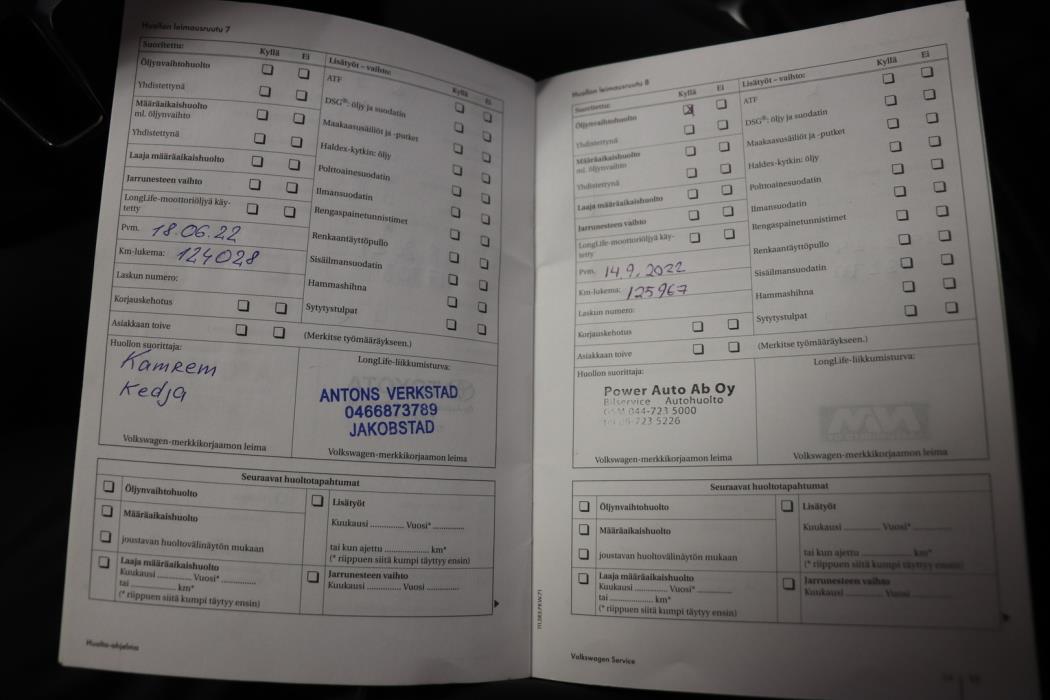 Huollon leimausruutu 7
Suoritettu: Kyllä Ei
Öljynvaihtohuolto
Yhdistettynä
Määräaikaishuolto
ml. öljynvaihto
Yhdistettynä
Laaja määräaikaishuolto
Jarrunesteen vaihto
LongLife-moottoriöljyä käy-
tetty
Pvm. 18.06.22
Km-lukema: 124028
Laskun numero:
Korjauskehotus
Asiakkaan toive
Lisätyöt – vaihto:
Kyllä Ei
ATF
DSG®: öljy ja suodatin
Maakaasusäiliöt ja -putket
Haldex-kytkin: öljy
Polttoainesuodatin
Ilmansuodatin
Rengaspainetunnistimet
Renkaantäyttöpullo
Sisäilmansuodatin
Hammashihna
Sytytystulpat
(Merkitse työmääräykseen.)
Huollon suorittaja:
Kamrem
Kedja
Volkswagen-merkkikorjaamon leima
LongLife-liikkumisturva:
ANTONS VERKSTAD
0466873789
JAKOBSTAD
Volkswagen-merkkikorjaamon leima
Seuraavat huoltotapahtumat
Öljynvaihtohuolto
Määräaikaishuolto
joustavan huoltovälinäytön mukaan
Laaja määräaikaishuolto
Kuukausi .............. Vuosi* ..............
tai .................. km*
(* riippuen siitä kumpi täytyy ensin)
Lisätyöt
Kuukausi .............. Vuosi* ..............
tai kun ajettu .................. km*
(* riippuen siitä kumpi täytyy ensin)
Jarrunesteen vaihto
Kuukausi .............. Vuosi ..............
Huolto-ohjelma
Huollon leimausruutu 8
Suoritettu: Kyllä Ei
Öljynvaihtohuolto
Yhdistettynä
Määräaikaishuolto
ml. öljynvaihto
Yhdistettynä
Laaja määräaikaishuolto
Jarrunesteen vaihto
LongLife-moottoriöljyä käy-
tetty
Pvm. 14.9.2022
Km-lukema: 125967
Laskun numero:
Korjauskehotus
Asiakkaan toive
Lisätyöt – vaihto: Kyllä Ei
ATF
DSG®: öljy ja suodatin
Maakaasusäiliöt ja -putket
Haldex-kytkin: öljy
Polttoainesuodatin
Ilmansuodatin
Rengaspainetunnistimet
Renkaantäyttöpullo
Sisäilmansuodatin
Hammashihna
Sytytystulpat
(Merkitse työmääräykseen.)
Huollon suorittaja:
Power Auto Ab Oy
Bilservice Autohuolto
GSM 044-723 5000
723 5226
Volkswagen-merkkikorjaamon leima
LongLife-liikkumisturva:
Volkswagen-merkkikorjaamon leima
Seuraavat huoltotapahtumat
Öljynvaihtohuolto
Määräaikaishuolto
joustavan huoltovälinäytön mukaan
Laaja määräaikaishuolto
Kuukausi .............. Vuosi* ..............
tai .................. km*
(* riippuen siitä kumpi täytyy ensin)
Lisätyöt
Kuukausi .............. Vuosi* ..............
tai kun ajettu .................. km*
(* riippuen siitä kumpi täytyy ensin)
Jarrunesteen vaihto
Kuukausi .............. Vuosi ..............
Volkswagen Service